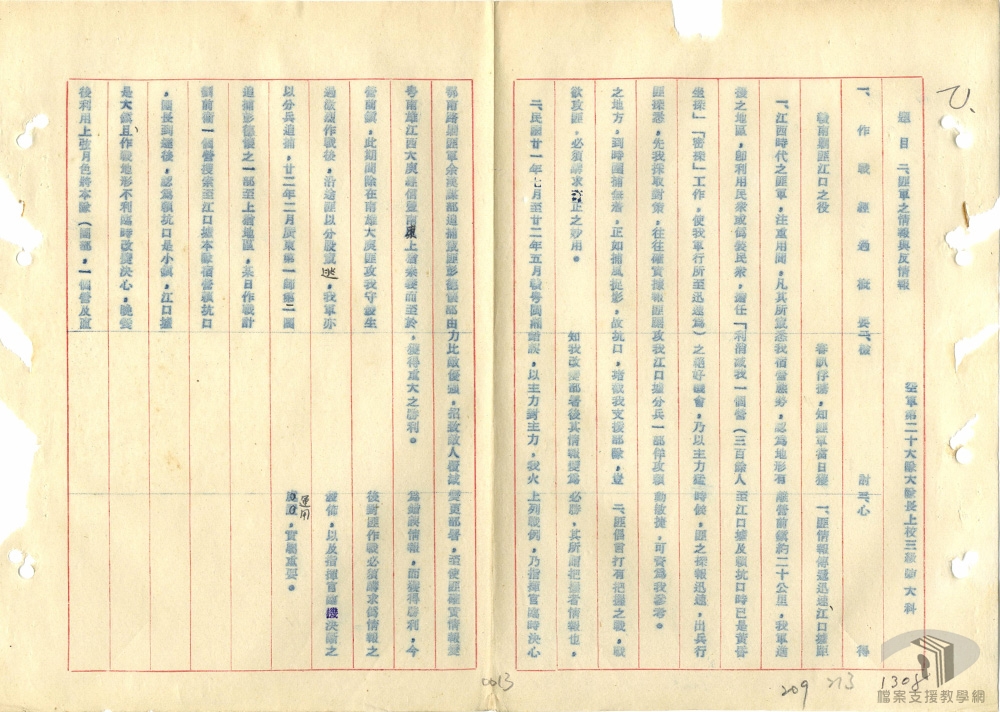 題目 二、匪軍之情報與反情報
空軍第二十大隊大隊長上校三級
一、作戰經過概要
二、檢討
三、心得
贛南剿匪江口之役
一、江西時代之匪軍，注重用間，凡其所最
後之地區，即利用民眾或偽裝民眾，擔任「
坐探」「密探」工作，使我軍行所至迅速為
匪探悉，先我採取對策，往往確實據報匪踞
之地方，到時圍捕無着，正如捕風捉影，故
欲攻匪，必須講求奇正之妙用。
二、民國廿一年七月至廿二年五月戰粵閩湘
鄂南路剿匪軍余漢謀部追捕東匪彭德懷部由
粵南雄江西大庾經信豐南康上猶崇義而至於
營前鎮，此期間除在南雄大庾匪攻我守發生
過激烈作戰後，沿途匪以分股竄逃，我軍亦
以分兵追捕，廿二年二月廣東第一師第二團
追捕彭德懷之一部至上猶地區，某日作戰計
劃前衛一個營搜索至江口墟本隊宿營磧坑口
，團長到達後，認為磧坑口是小鎮，江口墟
是大鎮且作戰地形不利臨時改變決心，晚餐
後利用上弦月色將本隊（團部，一個營及直
審訊俘擄，知匪軍當日獲
悉我宿營態勢，認為地形有
利消滅我一個營（三百餘人
）之絕好機會，乃以主力猛
攻我江口墟分兵一部佯攻磧
坑口，堵截我支援部隊，豈
知我改變部署後其情報變為
錯誤，以主力對主力，我火
力比敵優強，招致敵人覆滅
，獲得重大之勝利。
一、匪情報傳遞迅速江口墟距
離營前鎮約二十公里，我軍進
至江口墟及磧坑口時已是黃昏
時候，匪之探報迅速，出兵行
動敏捷，可資為我參考。
二、匪倡言打有把握之戰，戰
必勝，其所謂把握者情報也，
上列戰例，乃指揮官臨時決心
變更部署，至使匪確實情報變
為錯誤情報，而獲得勝利，今
後對匪作戰必須講求偽情報之
散佈，以及指揮官臨機決斷之
運用，實屬重要。
0013
209
213
1308
檔案支援教學網